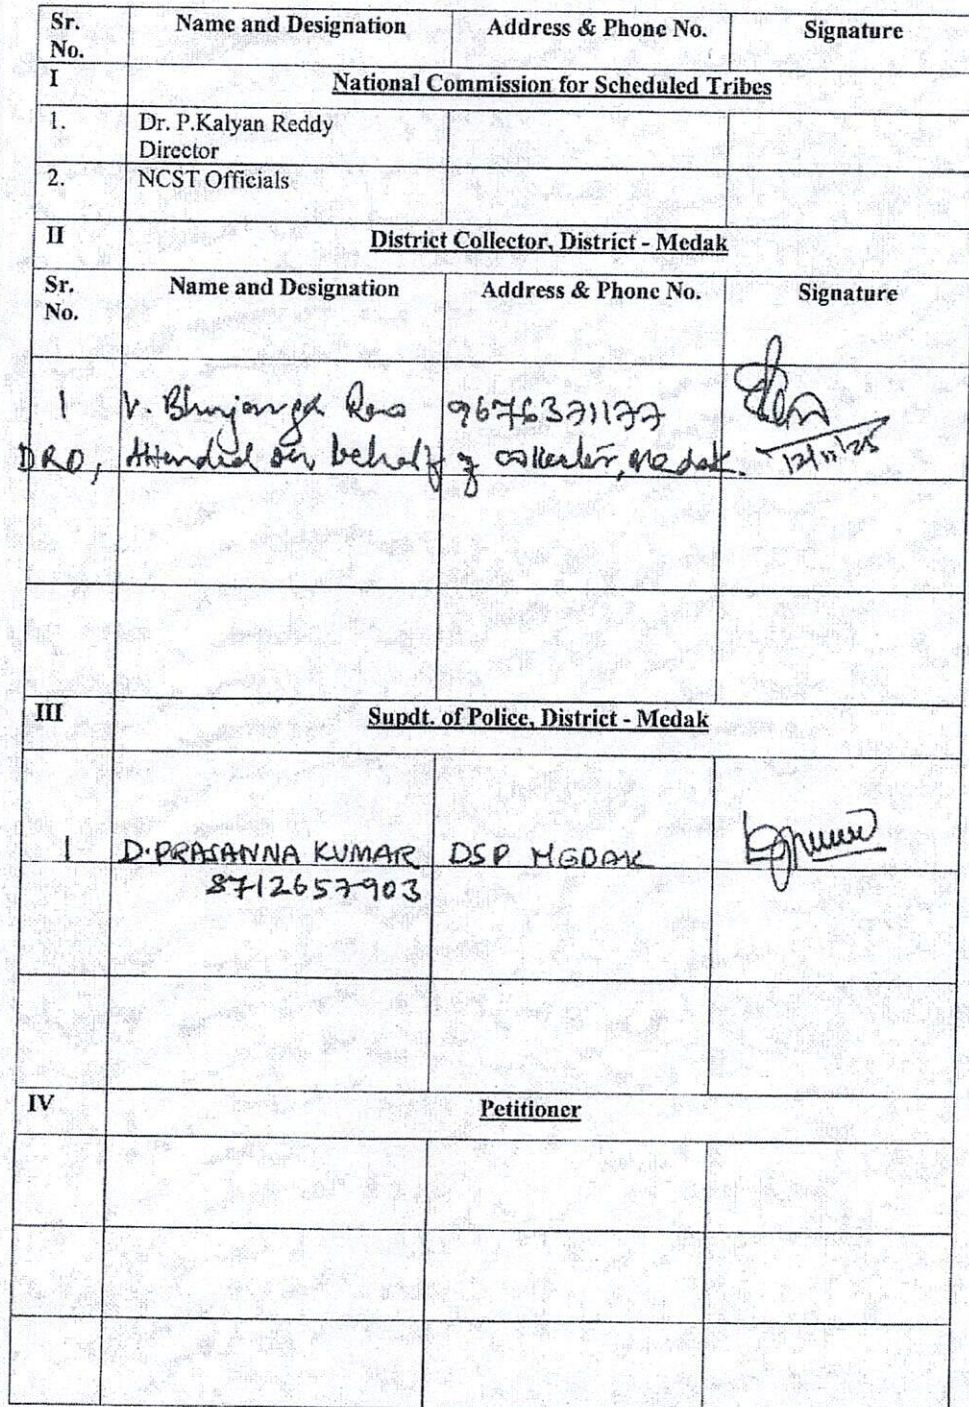 Sr. No. Name and Designation Address & Phone No. Signature
I National Commission for Scheduled Tribes
1. Dr. P.Kalyan Reddy
Director
2. NCST Officials
II District Collector, District - Medak
Sr. No. Name and Designation Address & Phone No. Signature
1 V. Bhujanga Rao 9676371177
DRO, Attended on behalf of collector, Medak. 12/11/25
III Supdt. of Police, District - Medak
1 D.PRASANNA KUMAR DSP MEDAK
8712657903
IV Petitioner